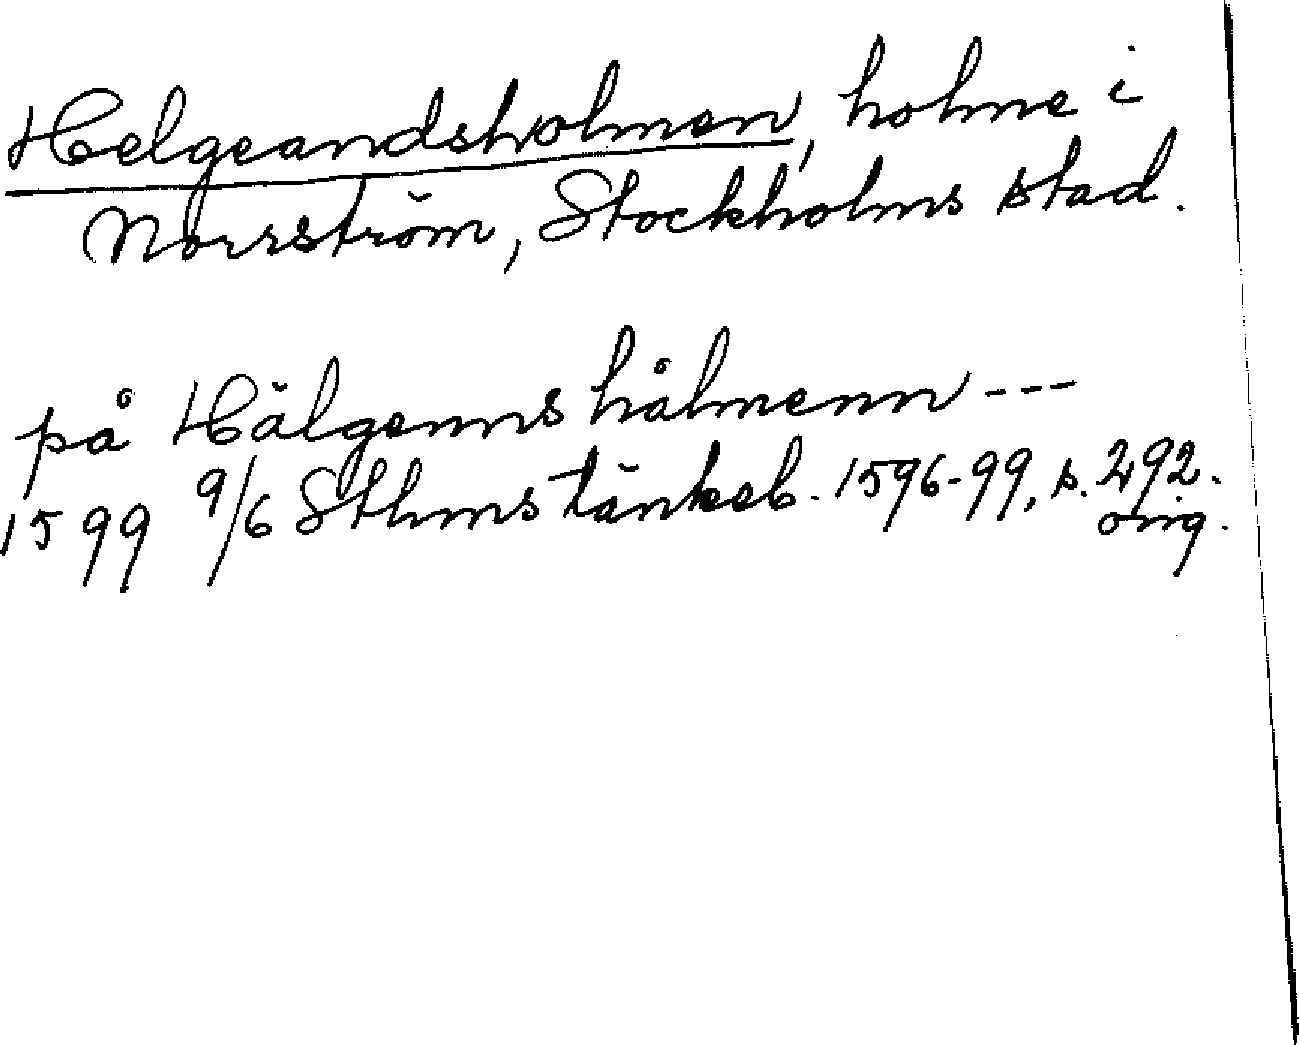 Helgeandsholmen, holme i
Norrström, Stockholms stad.
på Hälgenns hålmenn ---
1599 9/6 Sthms tänkeb. 1596-99, s. 292.
orig.